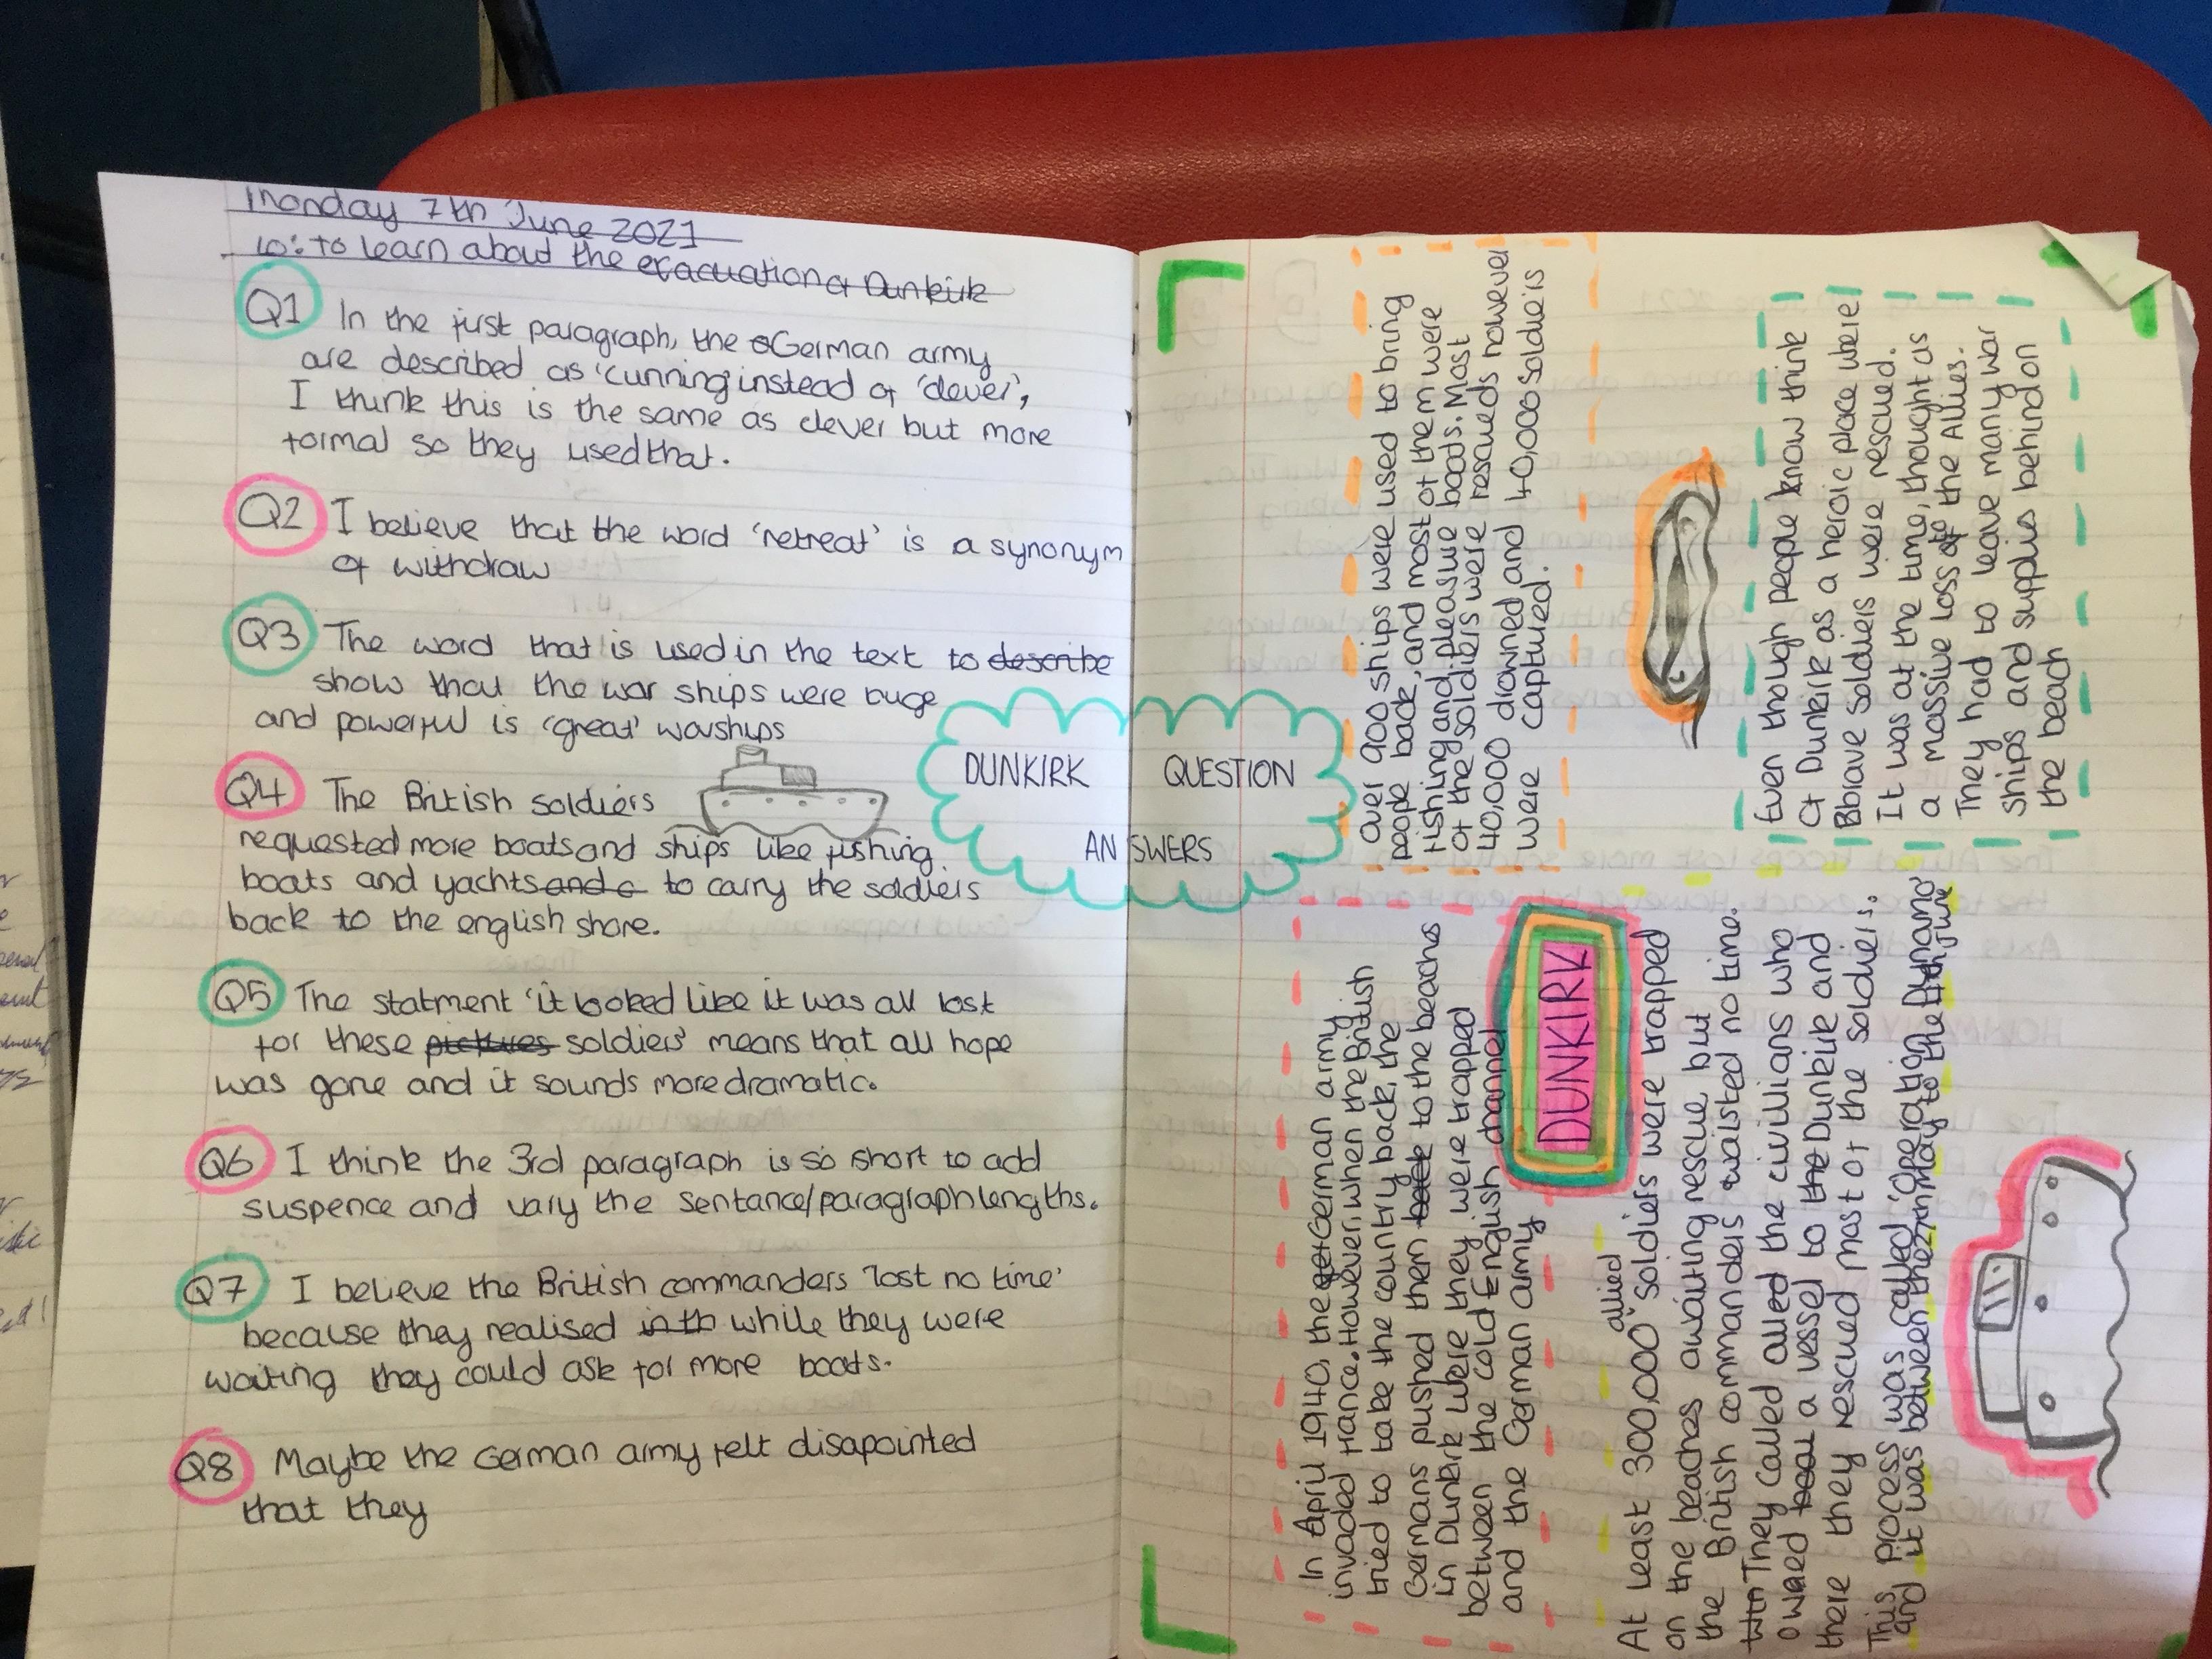 Monday 7th June 2021
LO: to learn about the evacuation of Dunkirk
Q1 In the first paragraph, the German army
are described as 'cunning' instead of 'clever',
I think this is the same as clever but more
formal so they used that.
Q2 I believe that the word 'retreat' is a synonym
of withdraw
Q3 The word that is used in the text to describe
show that the war ships were huge
and powerful is 'great' warships
Q4 The British soldiers
requested more boats and ships like fishing
boats and yachts and c to carry the soldiers
back to the english shore.
Q5 The statment 'it looked like it was all lost
for these pictures soldiers' means that all hope
was gone and it sounds more dramatic.
Q6 I think the 3rd paragraph is so short to add
suspence and vary the sentence/paragraph lengths.
Q7 I believe the British commanders 'lost no time'
because they realised in th while they were
waiting they could ask for more boats.
Q8 Maybe the German army felt disapointed
that they
DUNKIRK QUESTION
ANSWERS
In April 1940, the German army
invaded France. However, when the British
tried to take the country back, the
Germans pushed them back to the beachs
in Dunkirk were they were trapped
between the cold English channel
and the German army
DUNKIRK
At least 300,000 allied soldiers were trapped
on the beaches awaiting rescue but
the British commanders waisted no time.
They called alled the civillians who
owned boat a vessel to the Dunkirk and
there they rescued most of the soldiers.
This process was called 'Operation Dynamo'
and it was between the 27th may to the 4th June
Over 900 ships were used to bring
people back, and most of them were
fishing and pleasure boats. Most
of the soldiers were rescueds however
40,000 drowned and 40,000 soldiers
were captured.
Even though people know think
of Dunkirk as a heroic place were
Bbrave soldiers were rescued.
It was at the time, thought as
a massive loss to the Allies.
They had to leave many war
ships and supplies behind on
the beach